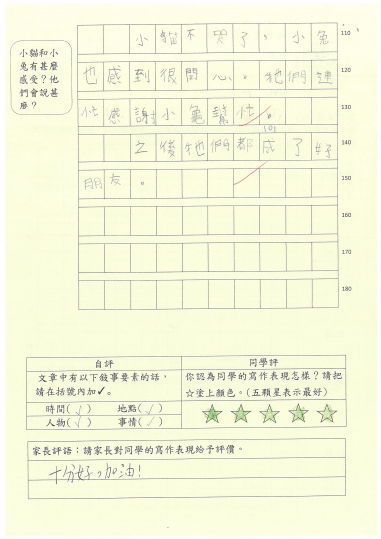 小貓不哭了，小兔
110
小貓和小
兔有甚麼
感受？他
們會說甚
麼？
也感到很開心。牠們連
120
忙感謝小龜幫忙。
130
101
之後牠們都成了好
140
朋友。
150
160
170
180
自評
同學評
文章中有以下敘事要素的話，
請在括號內加✓。
你認為同學的寫作表現怎樣？請把
☆塗上顏色。(五顆星表示最好)
時間(✓) 地點(✓)
人物(✓) 事情(✓)
家長評語：請家長對同學的寫作表現給予評價。
十分好，加油！